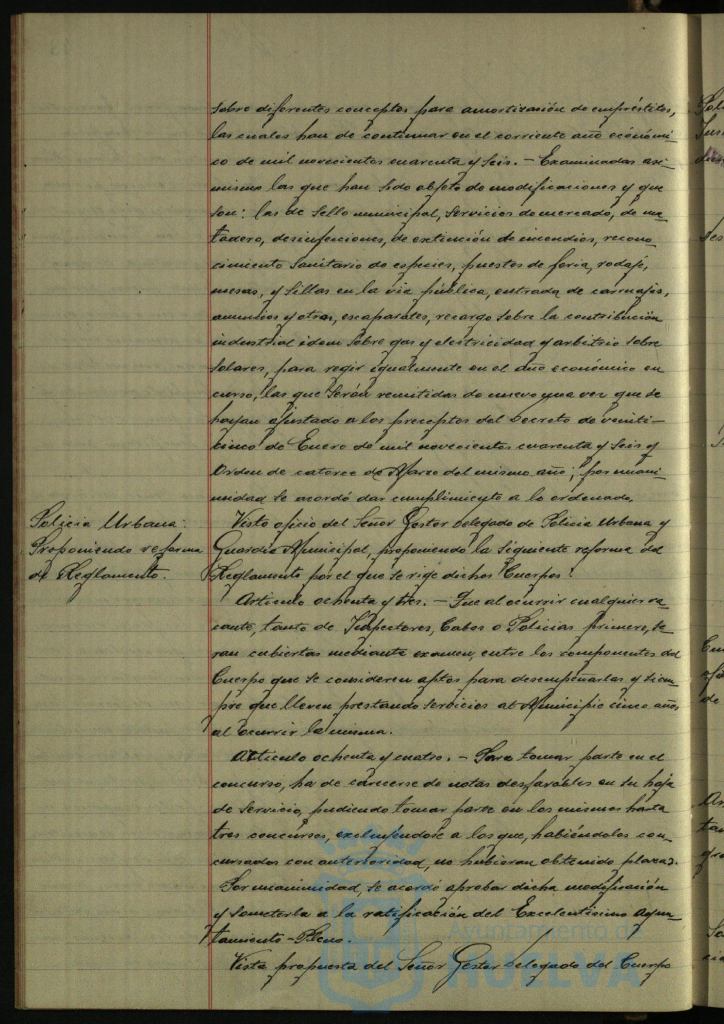 sobre diferentes conceptos para amortización de empréstitos,
las cuales han de continuar en el corriente año económi-
co de mil novecientos cuarenta y seis. - Examinadas asi-
mismo las que han sido objeto de modificaciones y que
son: las de Sello municipal, Servicios de mercado, de ma-
tadero, desinfecciones, de extinción de incendios, recono-
cimiento Sanitario de especies, puestos de feria, rodaje,
mesas, y Sillas en la via pública, entrada de carruajes,
anuncios y otras, escaparates, recargo sobre la contribución
industrial idem Sobre gas y electricidad y arbitrio sobre
Solares, para regir igualmente en el año económico en
curso, las que Serán remitidas de nuevo una vez que se
hayan ajustado a los preceptos del Decreto de veinti-
cinco de Enero de mil novecientos cuarenta y Seis y
Orden de catorce de Marzo del mismo año; por unani-
midad se acordó dar cumplimiento a lo ordenado.
Policia Urbana:
Proponiendo reforma
de Reglamento.
Visto oficio del Señor Gestor delegado de Policia Urbana y
Guardia Municipal, proponiendo la Siguiente reforma del
Reglamento por el que se rige dichos Cuerpos:
Articulo ochenta y tres. - Que al ocurrir cualquier va-
cante, tanto de Inspectores, Cabos o Policias primero, se-
ran cubiertas mediante examen, entre los componentes del
Cuerpo que se consideren aptos para desempeñarlas y siem-
pre que lleven prestando Servicios al Municipio cinco años
al ocurrir la misma.
Articulo ochenta y cuatro. - Para tomar parte en el
concurso, ha de carecerse de notas desfavorables en su hoja
de Servicio, pudiendo tomar parte en los mismos hasta
tres concursos, excluyendose a los que, habiéndolos con-
cursados con anterioridad, no hubieran obtenido plazas.
Por unanimidad, se acordó aprobar dicha modificación
y Someterla a la ratificación del Excelentisimo Ayun-
tamiento-Pleno.
Vista propuesta del Señor Gestor delegado del Cuerpo
Ayuntamiento de
HUELVA